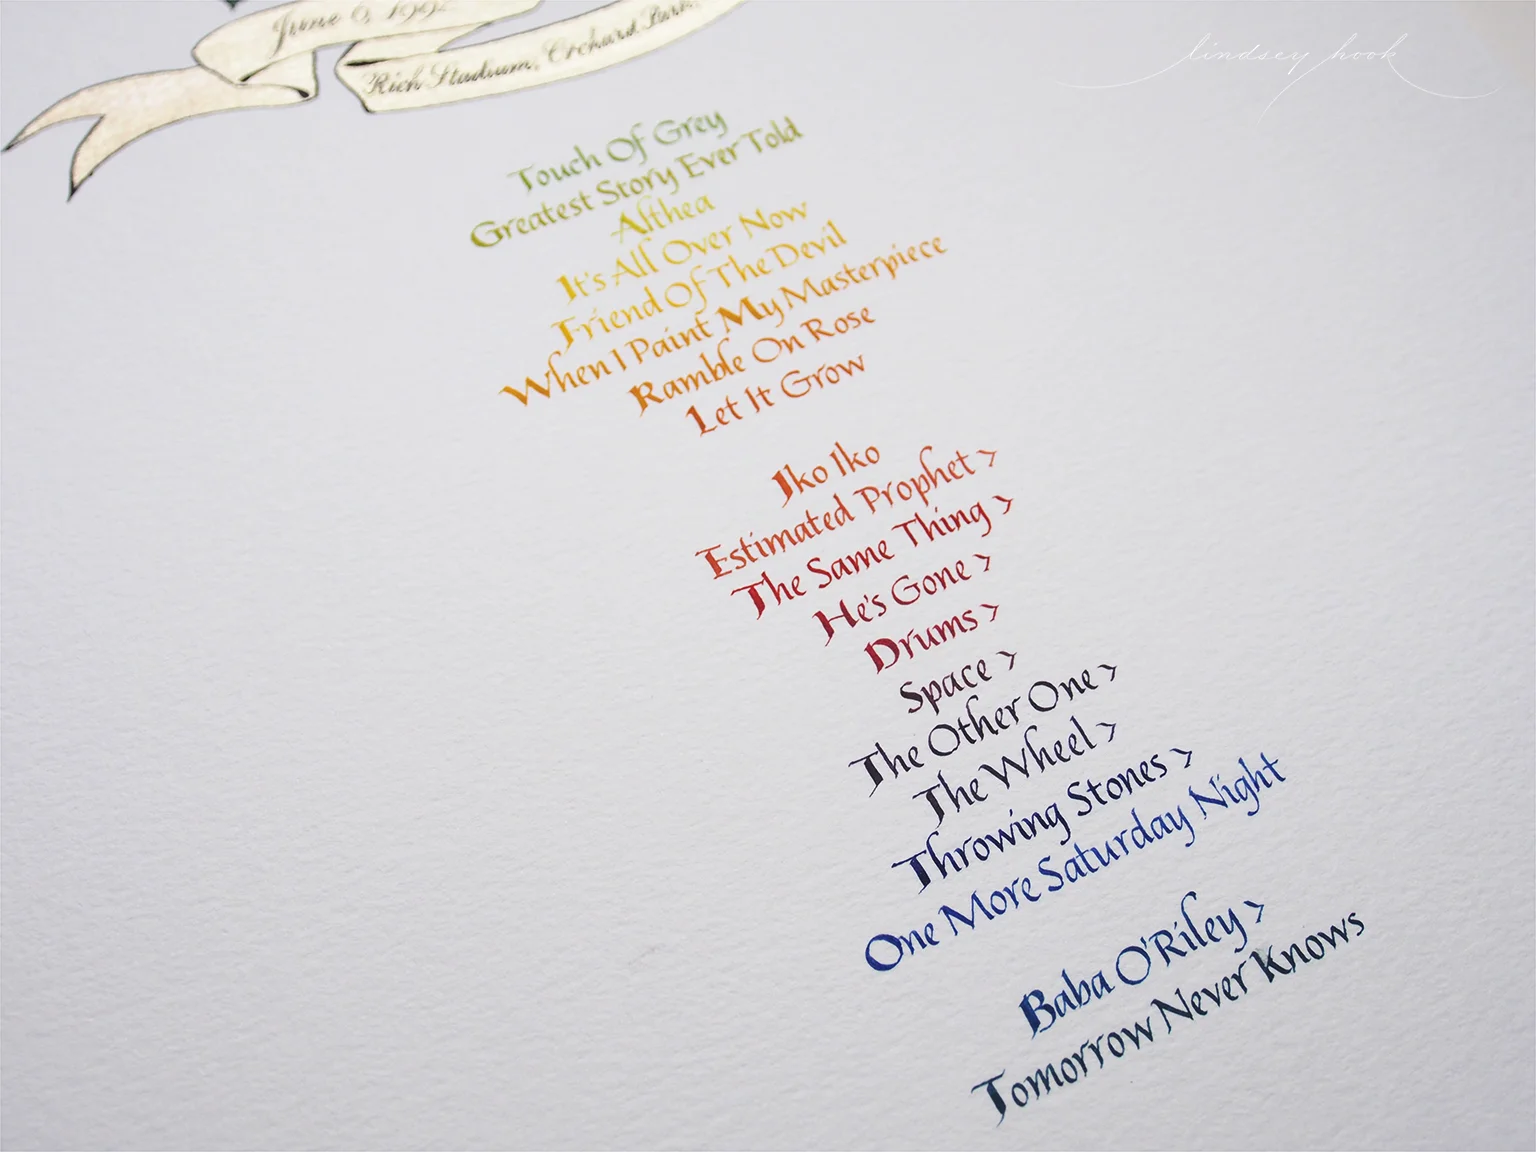 June 6, 1992
Rich Stadium, Orchard Park,
lindsey hook
Touch Of Grey
Greatest Story Ever Told
Althea
It's All Over Now
Friend Of The Devil
When I Paint My Masterpiece
Ramble On Rose
Let It Grow
Iko Iko
Estimated Prophet >
The Same Thing >
He's Gone >
Drums >
Space >
The Other One >
The Wheel >
Throwing Stones >
One More Saturday Night
Baba O'Riley >
Tomorrow Never Knows